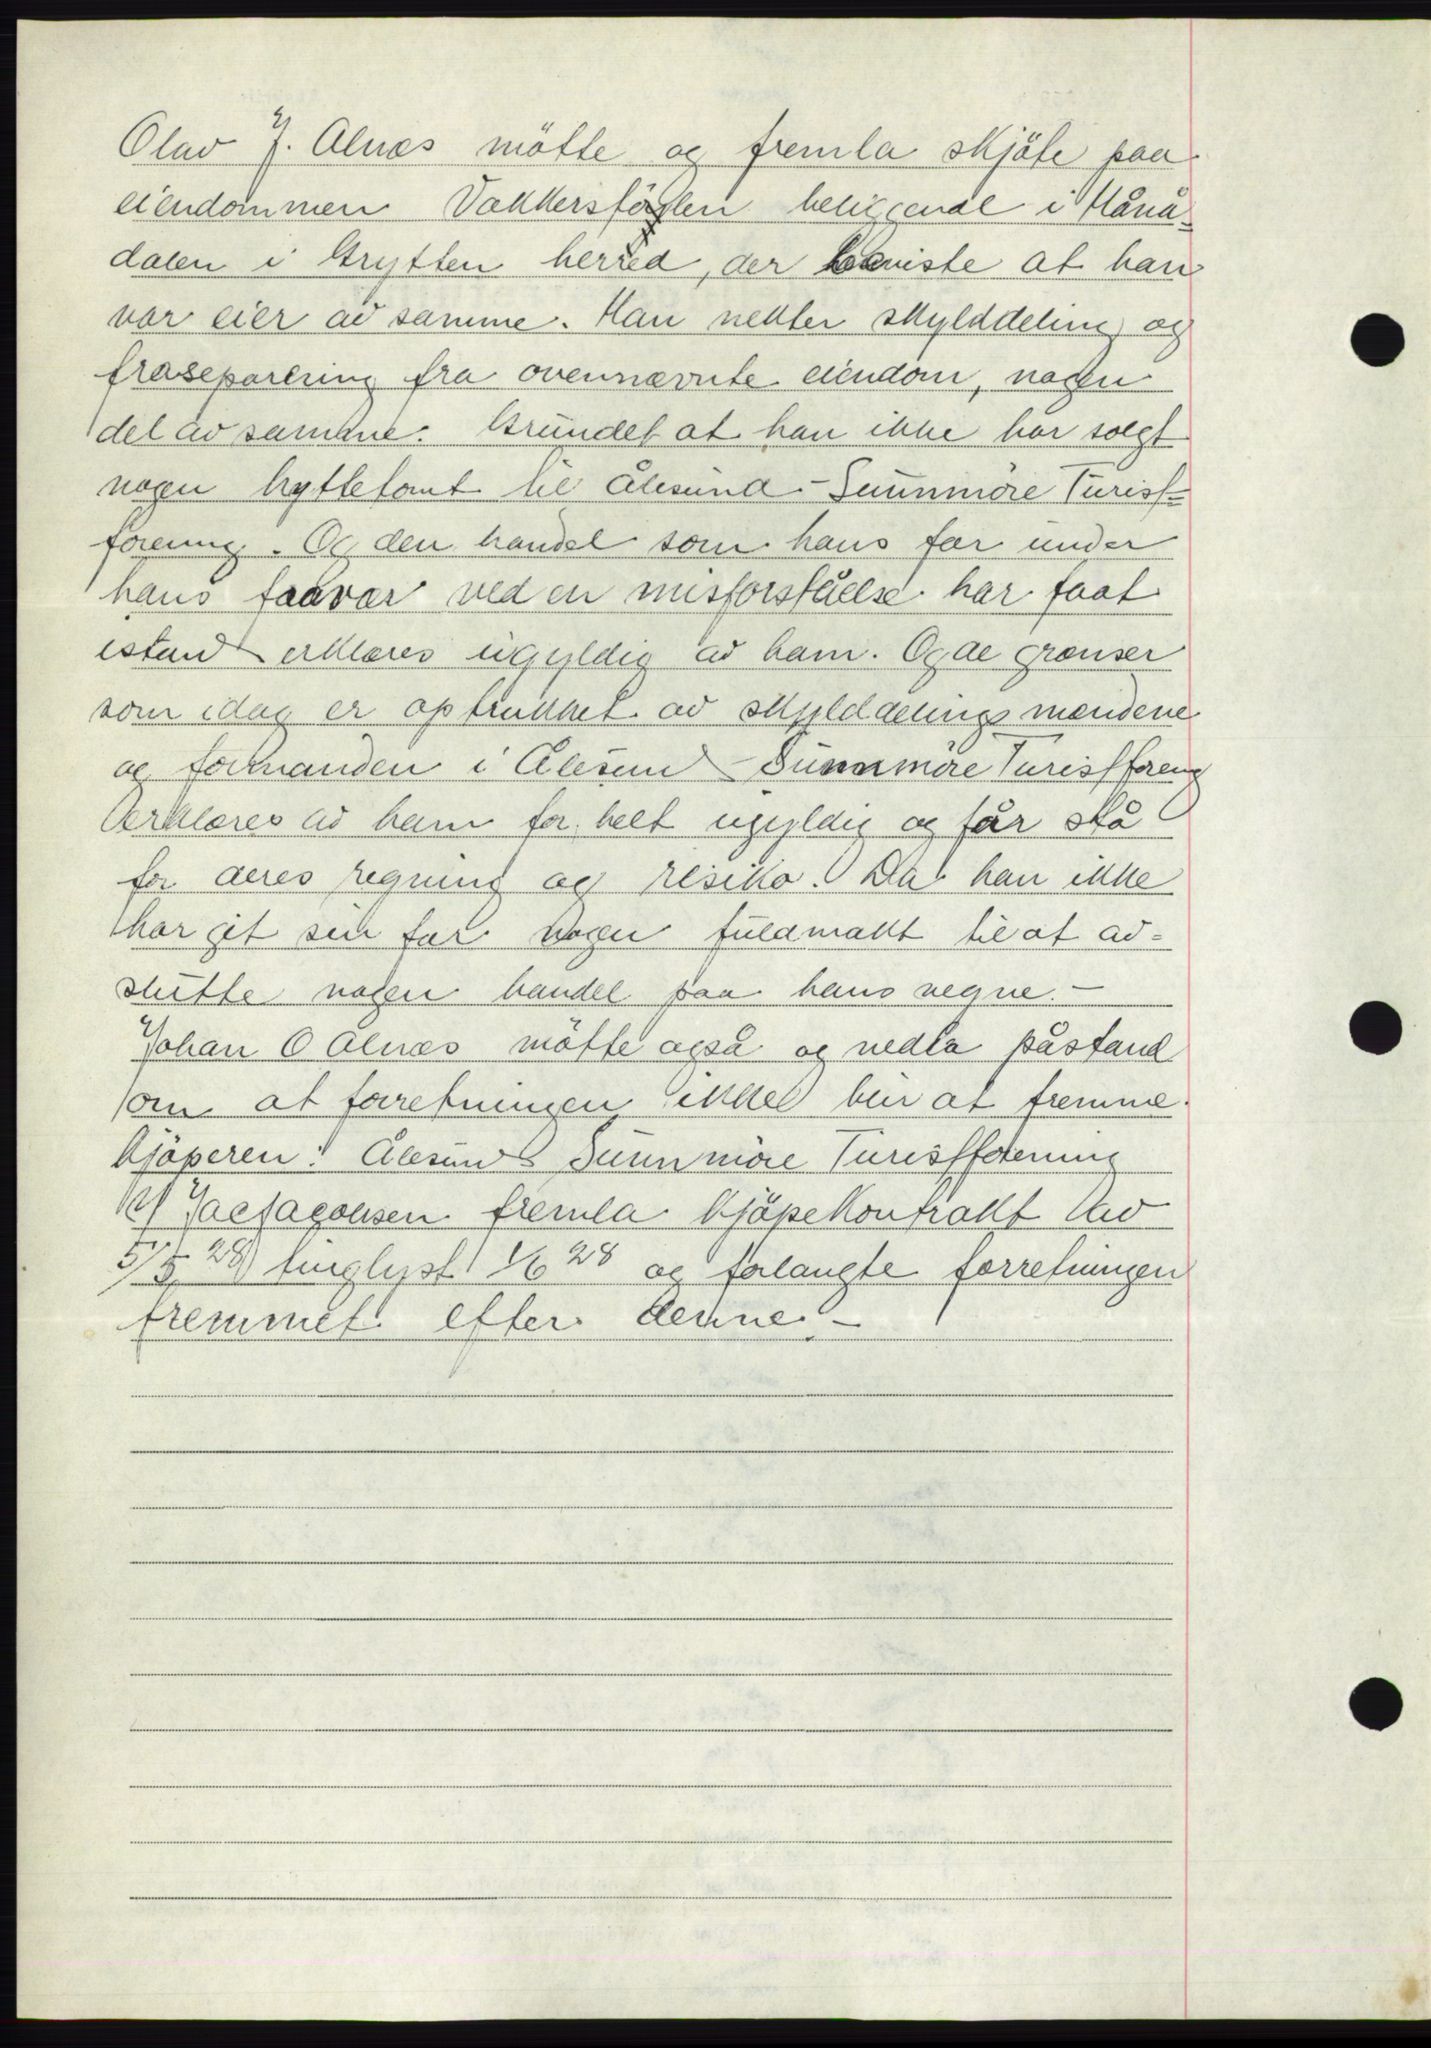 Olav J. Alnæs mötte og fremla skjöte paa
eiendommen Vakkersföylen beliggende i Månå-
dalen i Grytten herred, der beviste at han
var eier av samme. Han nekter skylddeling og
fraseparering fra ovennævnte eiendom, nogen
del av samme. Grundet at han ikke har solgt
nogen hyttetomt til Ålesund - Sunnmöre Turist-
forening. Og den handel som hans far under
hans fravær ved en misforståelse har faat
istand erklæres ugyldig av ham. Og de grænser
som idag er optrukket av skylddelingsmændene
og formanden i Ålesund - Sunnmöre Turistforeng
erklæres av ham for helt ugyldig og får stå
for deres regning og resiko. Da han ikke
har git sin far nogen fuldmakt til at av-
slutte nogen handel paa hans vegne. -
Johan O Alnæs mötte også og nedla påstand
om at forretningen ikke blir at fremme.
Kjöperen: Ålesund Sunnmöre Turistforening
v/ Jac Jacobsen fremla Kjöpekontrakt av
5/5 28 tinglyst 1/6 28 og forlangte forretningen
fremmet efter denne. -